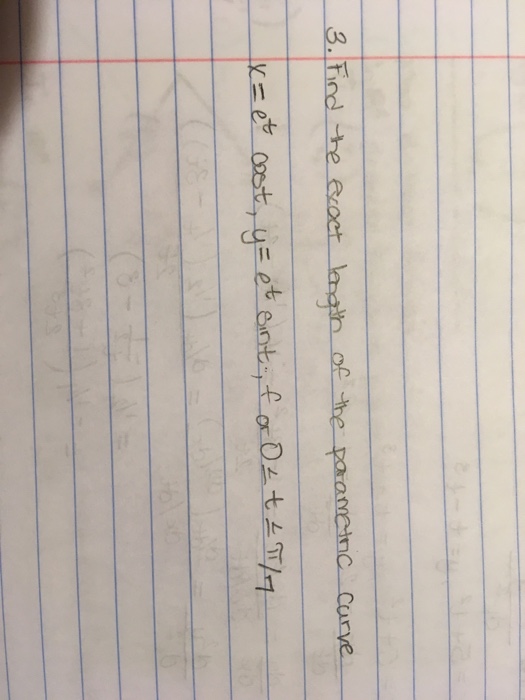 3. Find the exact length of the parametric curve
x = e^t cost, y = e^t sint, for 0 ≤ t ≤ π/7